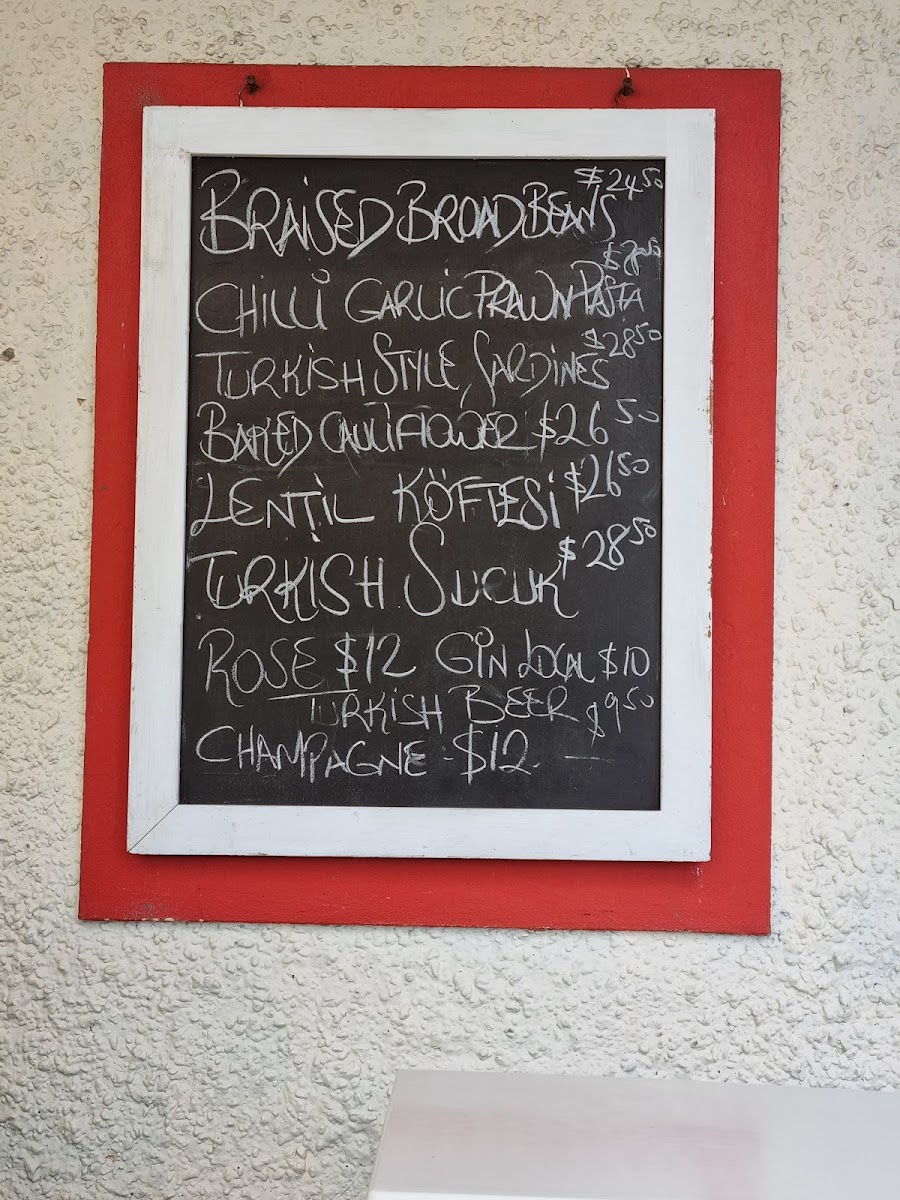 BRAISED BROAD BEANS $24.50
CHILLI GARLIC PRAWN PASTA
TURKISH STYLE SARDINES $28.50
BAKED CAULIFLOWER $26.50
LENTIL KÖFTESİ $26.50
TURKISH SUCUK $28.50
ROSE $12 GIN LOCAL $10
TURKISH BEER $9.50
CHAMPAGNE - $12. —